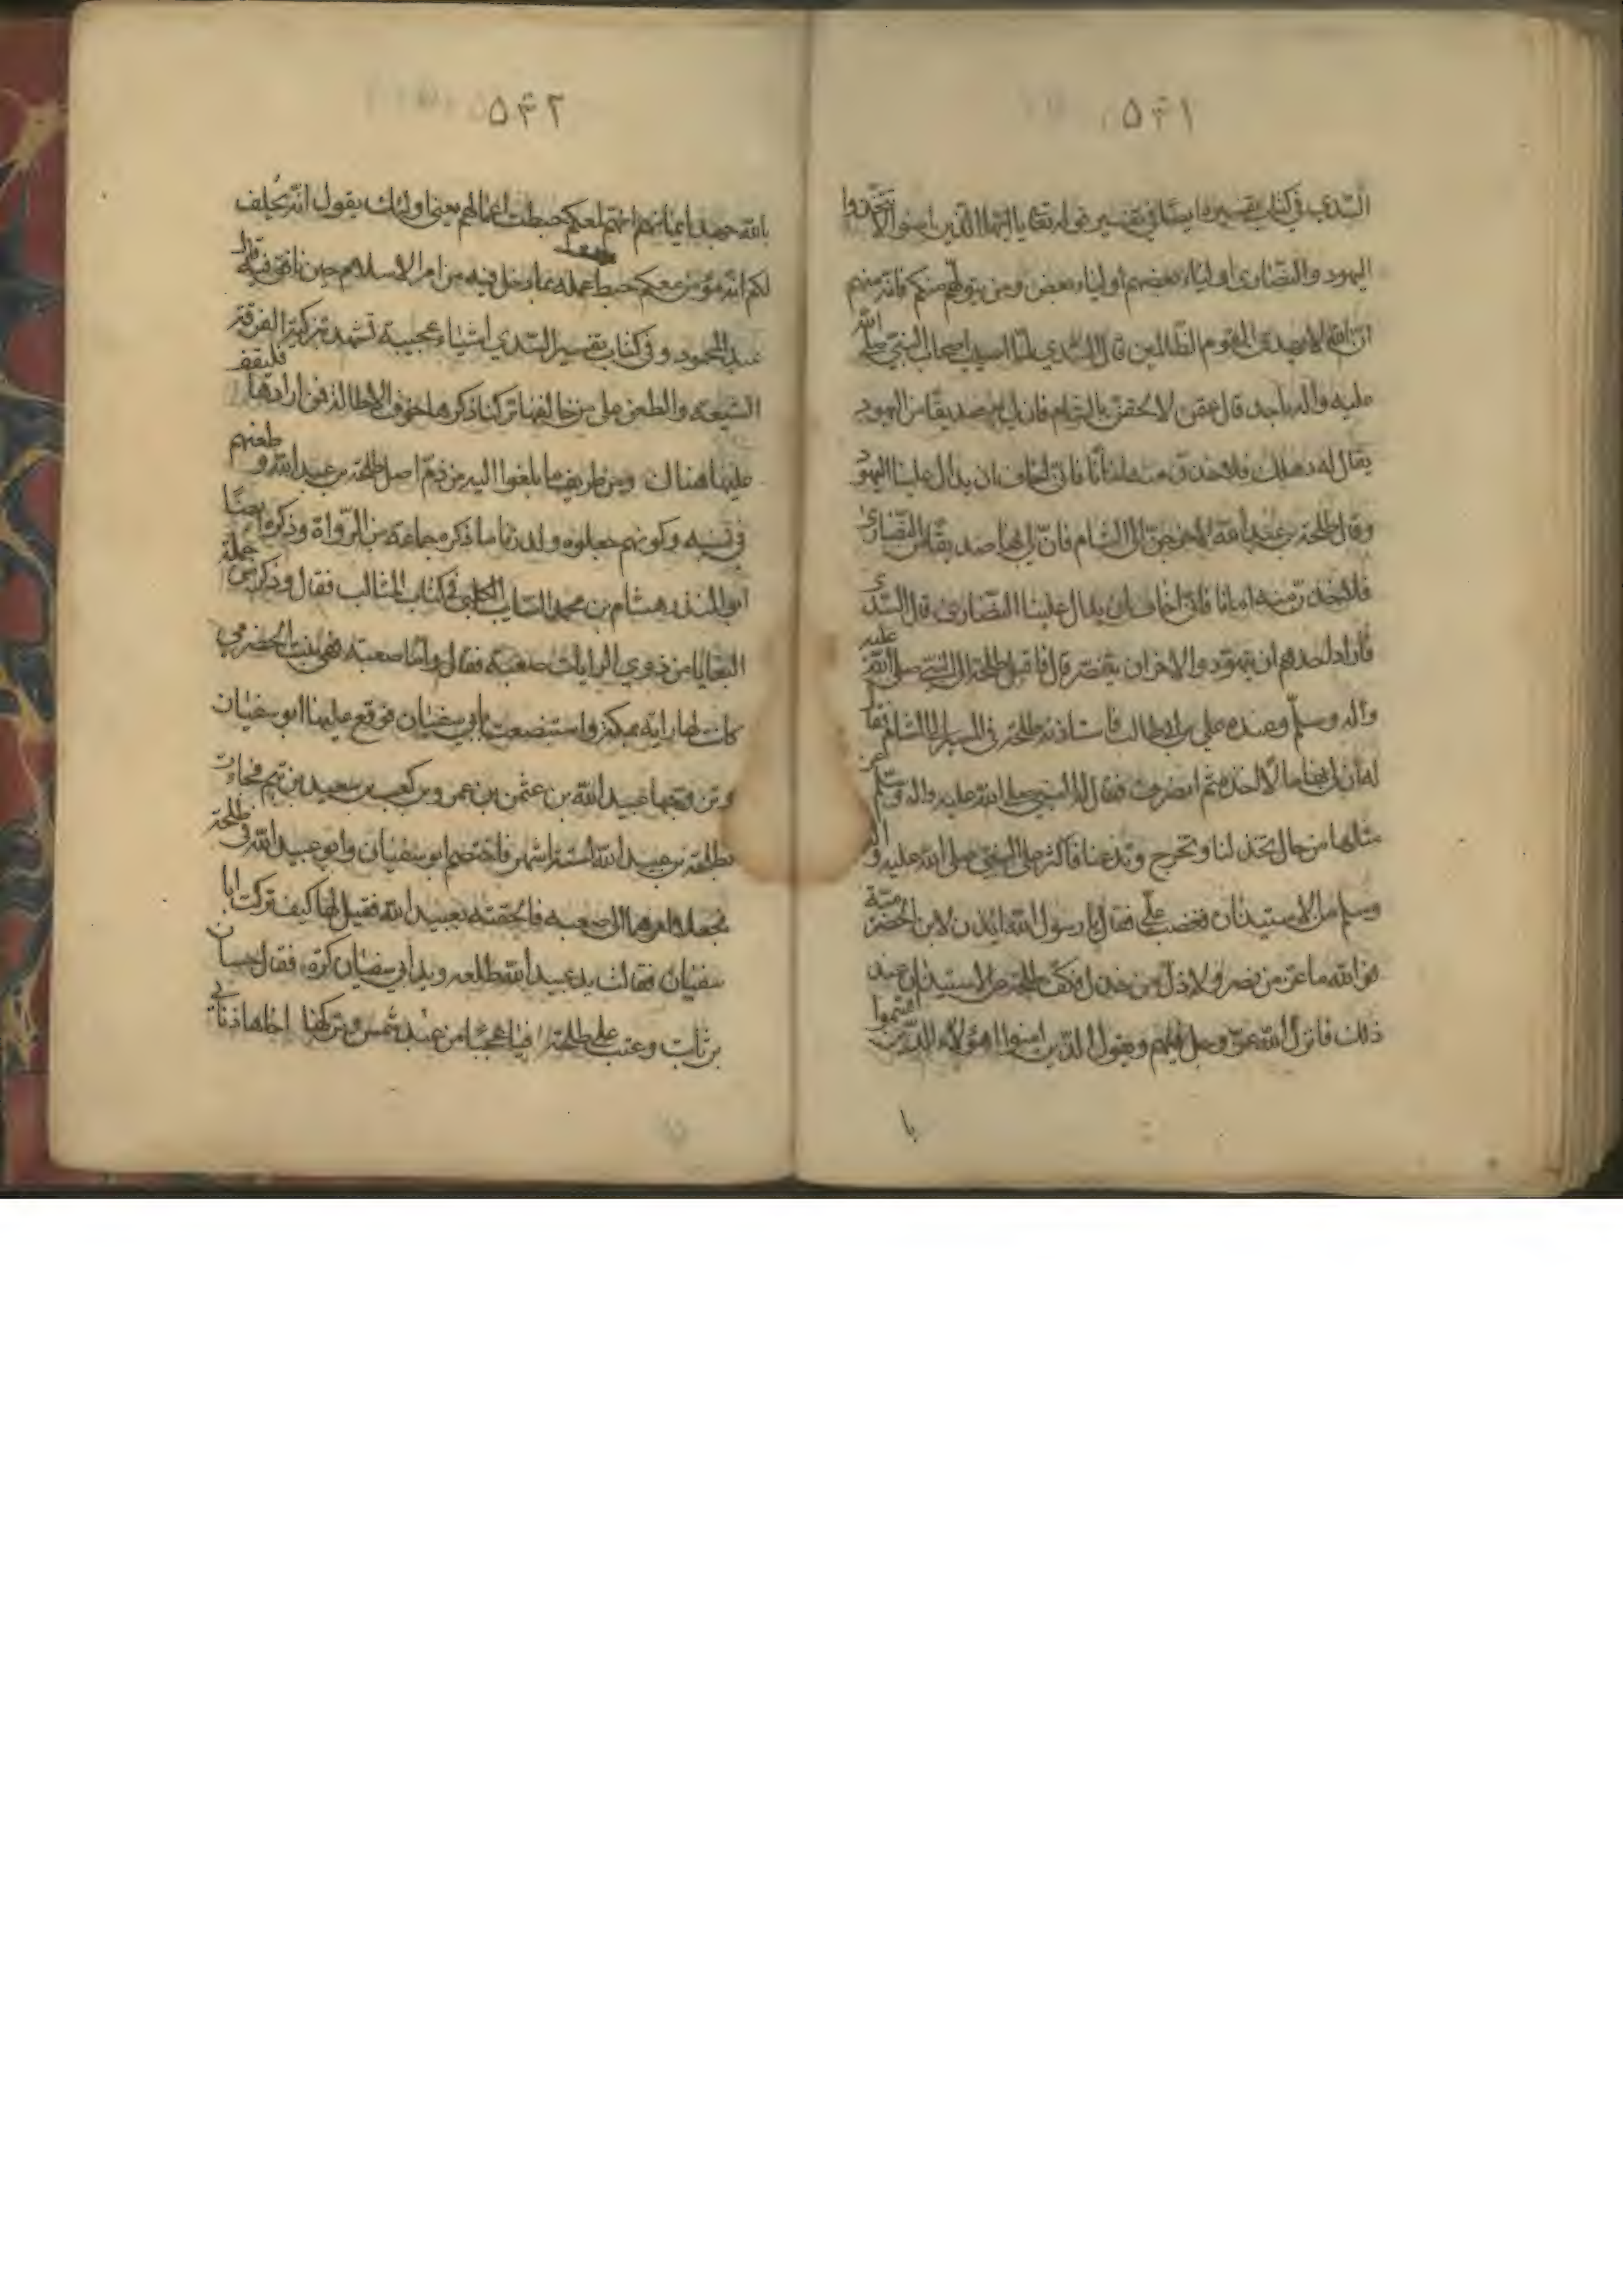 ٥٤١
السدي في كتاب تفسير ايضا في تفسير قوله تعالى يا ايها الذين امنوا لا تتخذوا
اليهود والنصارى اولياء بعضهم اولياء بعض ومن يتولهم منكم فانه منهم
ان الله لا يهدي القوم الظالمين قال السدي لما اصيب اصحاب النبي صلى الله
عليه واله باحد قال عثمن لالحقن بالشام فان لي به صديقا من اليهود
يقال له دهلك فلاخذن منه امانا فاني اخاف ان يدال علينا اليهود
وقال طلحة بن عبيد الله لاخرجن الى الشام فان لي بها صديقا من النصارى
فلاخذن منه امانا فاني اخاف ان يدال علينا النصارى قال السدي
فاراد احدهم ان يتهود والاخر ان يتنصر قال فاقبل طلحة الى النبي صلى الله عليه
واله وسلم وعنده علي بن ابي طالب فاستاذنه طلحة في المسير الى الشام فقال
له ان لي بها مالا اخذه ثم انصرف فقال له النبي صلى الله عليه واله وسلم عن
مثلها من حال تخذلنا وتخرج وتدعنا فاكثر على النبي صلى الله عليه واله
وسلم من الاستيذان فغضب علي فقال يا رسول الله ايذن لابن الحضرمية
فوالله ما عز من نصره ولا ذل من خذل فكف طلحة عن الاستيذان عند
ذلك فانزل الله عز وجل فيهم ويقول الذين امنوا اهؤلاء الذين اقسموا
با
٥٤٢
بالله جهد ايمانهم انهم لمعكم حبطت اعمالهم يعني اولئك يقول انه يحلف
لكم انه مؤمن معكم حبط عمله بما دخل فيه من امر الاسلام حين نافق فيه قال
عبد المحمود وفي كتاب تفسير السدي اشياء عجيبة تشهد بتزكية الفرقة
الشيعة والطعن على من خالفها تركنا ذكرها خوف الاطالة فمن ارادها فليقف
عليها هناك ومن طريف ما بلغوا اليه من ذم اصل طلحة بن عبيد الله وطعنهم
في نسبه وكونهم جعلوه ولد زنا ما ذكره جماعة من الرواة وذكره ايضا
ابو المنذر هشام بن محمد السايب الكلبي في كتاب المثالب فقال وذكر من جملة
البغايا من ذوي الرايات صعبة فقال واما صعبة فهي بنت الحضرمي
كانت لها راية بمكة واستبضعت بابي سفيان فوقع عليها ابو سفيان
وتزوجها عبيد الله بن عثمن بن عمرو بن كعب بن سعيد بن تيم فجاءت
بطلحة بن عبيد الله لستة اشهر فاختصم ابو سفيان وابو عبيد الله في طلحة
فجعلا امرهما الى صعبة فالحقته بعبيد الله فقيل لها كيف تركت ابا
سفيان فقالت يد عبيد الله طلعه ويد ابي سفيان كرة فقال حسان
بن ثابت وعتب على طلحة فيا عجبا من عبد شمس وتركها اخاها